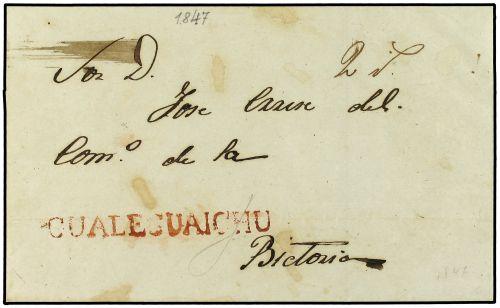 1847
Sor D. 2 r.
Jose Cruse del.
Com.o de la
GUALEGUAICHU
Bictoria
1847